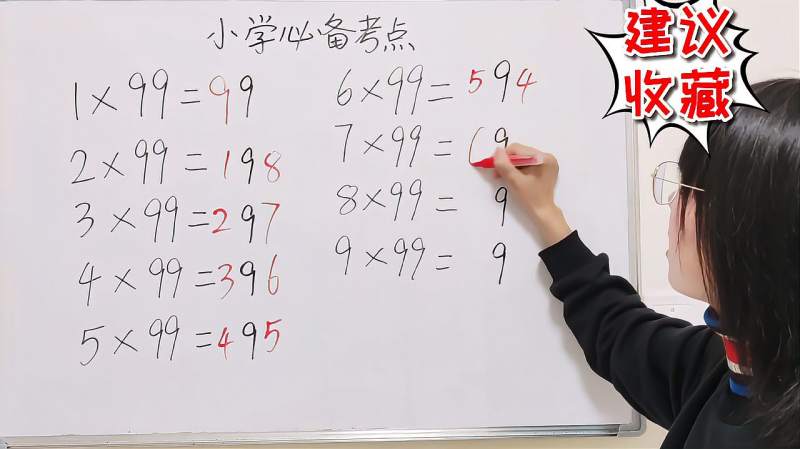 小学必备考点
建议
收藏
1×99=99
2×99=198
3×99=297
4×99=396
5×99=495
6×99=594
7×99=69
8×99= 9
9×99= 9